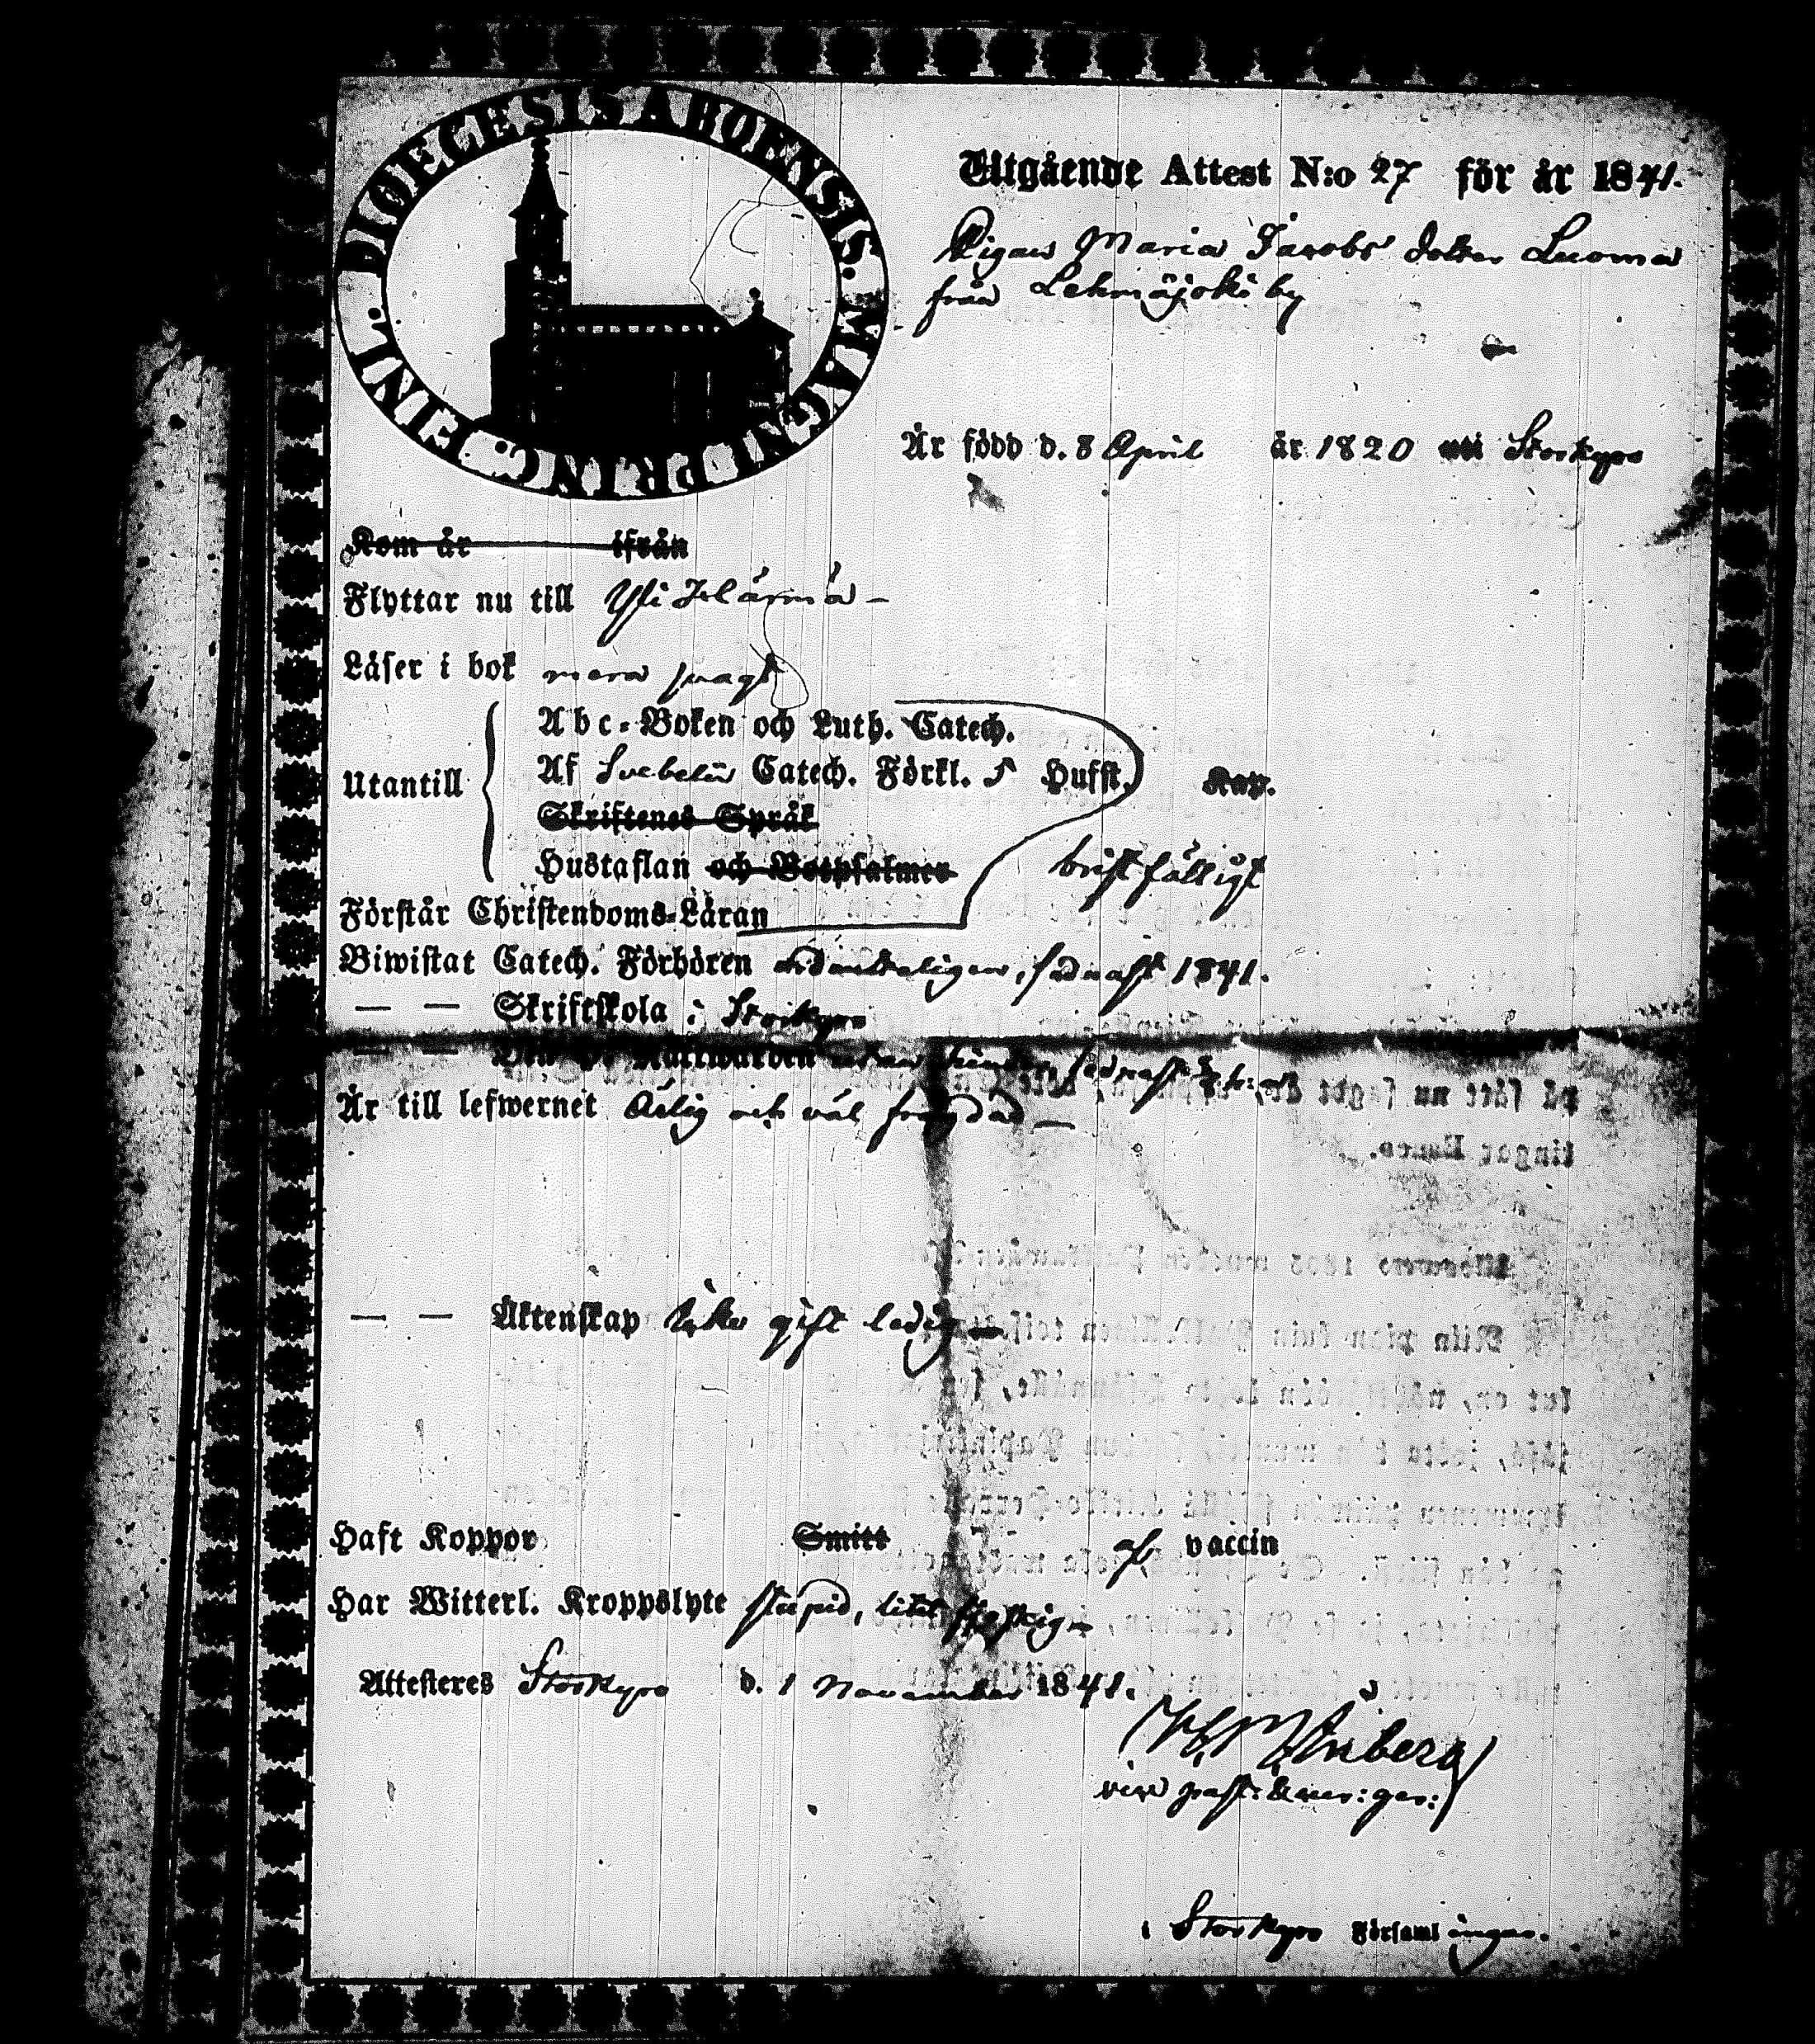 DIOECESIS ABOENSIS. MAGNI PRINC. FINL.
Utgående Attest N:o 27 för år 1841.
Pigan Maria Jacobs dotter Luoma
från Lehmäjoki by
Är född d. 8 April år 1820 uti Storkyro
Kom år ifrån
Flyttar nu till Yli Härmä –
Läser i bok mera svagt
Abc-Boken och Luth. Catech.
Utantill Af Svebelii Catech. Förkl. 5 Hufst. Kap.
Skriftenes Språk
Hustaflan och Botpsalmer
bristfälligt
Förstår Christendoms-Läran
Biwistat Catech. Förhören sednast 1841.
— — Skriftskola i Storkyro
— — Den H. Nattwarden sednast
Är till lefwernet ärlig och väl frejdad —
— — Äktenskap icke gift ledig —
Haft Koppor Smitt af vaccin
Har Witterl. Kroppslyte stupid, litet
Attesteres Storkyro d. 1 November 1841.
i Storkyro Församlingar.
på sått nu sagt är,
lingar Euros.